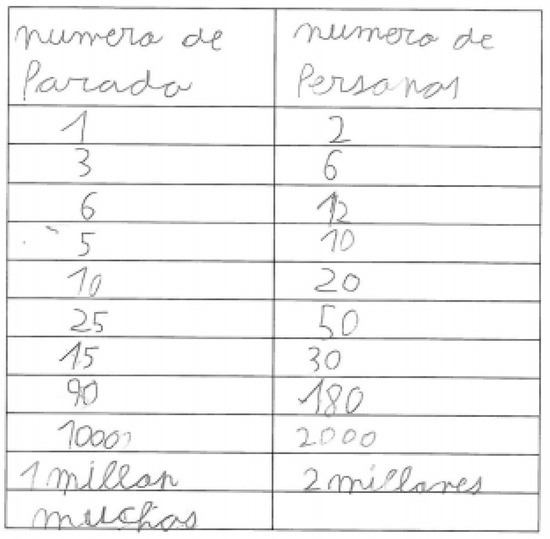 numero de Parada numero de Personas
1 2
3 6
6 12
5 10
10 20
25 50
15 30
90 180
1000 2000
1 millon 2 millones
muchas